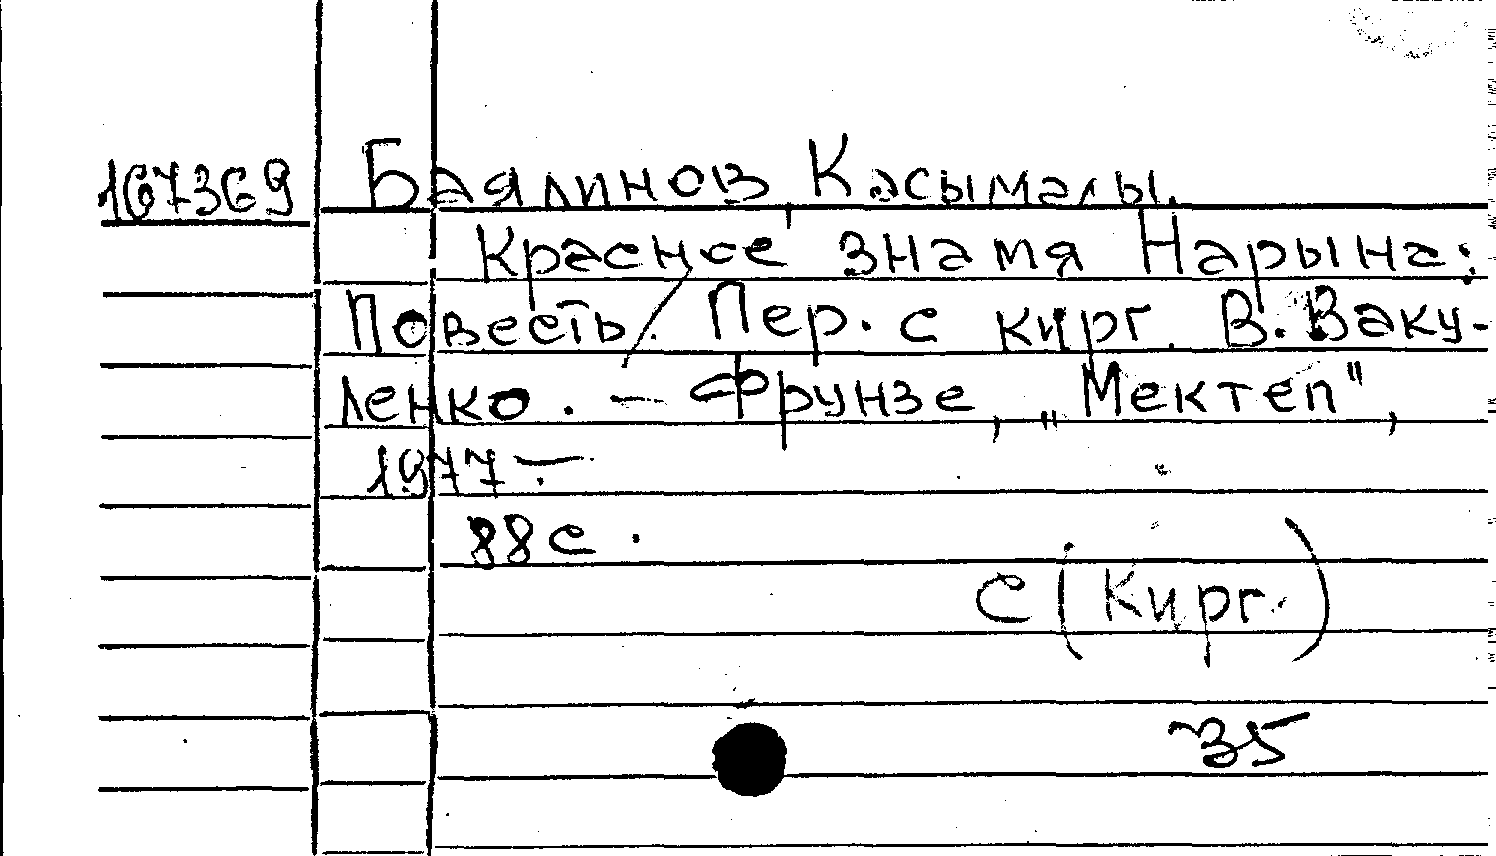 167369 Баялинов, Касымалы.
Красное знамя Нарына:
Повесть / . Пер. с кирг. В. Ваку-
ленко. — Фрунзе, „Мектеп",
1977. —
88 с.
С (Кирг.)
35